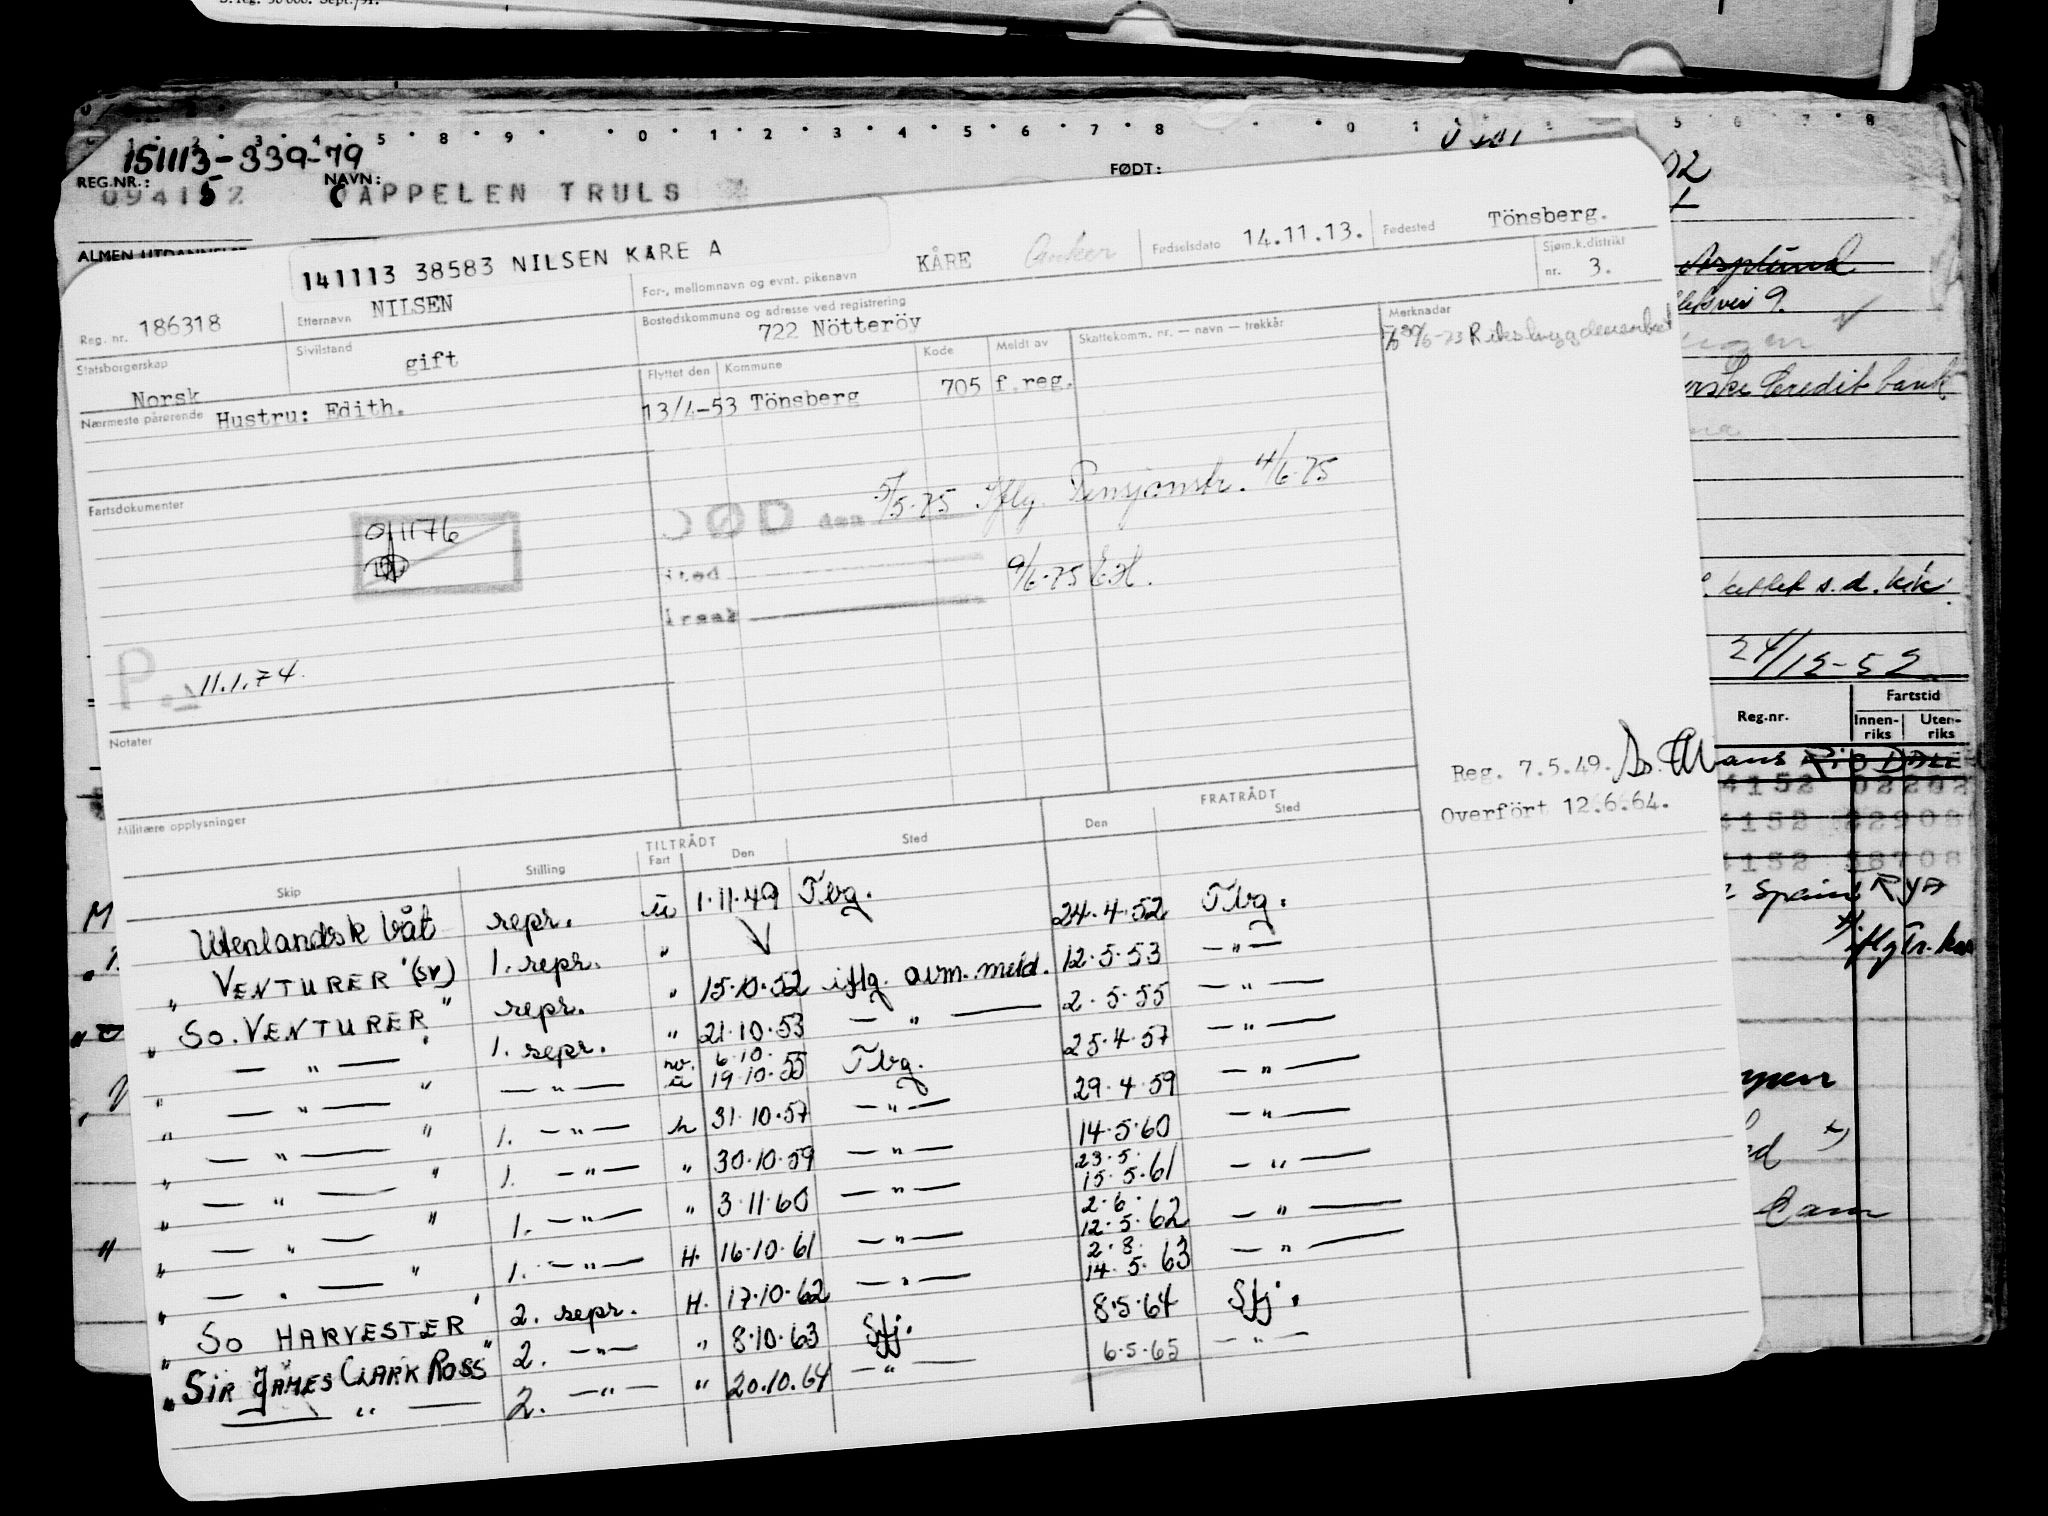 S. reg. 50 000. Sept./51.
151113-339-79
REG.NR.: 094152 NAVN: CAPPELEN TRULS FØDT:
ALMEN UTDANNELSE
141113 38583 NILSEN KARE A
Reg. nr. 186318 Etternavn NILSEN For-, mellomnavn og evnt. pikenavn KÅRE Anker Fødselsdato 14.11.13. Fødested Tönsberg.
Sjøm.k.distrikt nr. 3.
Statsborgerskap Norsk Sivilstand gift Bostedskommune og adresse ved registrering 722 Nötteröy
Merknader
Flyttet den Kommune Kode Meldt av Skattekomm. nr. — navn — trekkår
Nærmeste pårørende Hustru: Edith. 13/4-53 Tönsberg 705 f.reg.
Fartsdokumenter
011176
DØD den 5/5-75 Iflg. Pensjonstr. 4/6-75
sted 9/6-75 EH.
årsak
P. 11.1.74.
Notater
Militære opplysninger
Reg. 7.5.49.
Overfört 12.6.64.
TILTRÅDT FRATRÅDT
Skip Stilling Fart Den Sted Den Sted
Utenlandsk båt repr. u 1.11.49 Tbg. 24.4.52 Tbg.
" VENTURER" (sv) 1. repr. " 15.10.52 iflg. avm. meld. 12.5.53 — " —
" So. VENTURER " repr. " 21.10.53 — " — 2.5.55 — " —
" — " — " 1. repr. nv. u 6.10. 19.10.55 Tbg. 25.4.57 — " —
" — " — " — " — h 31.10.57 — " — 29.4.59 — " —
" — " — " 1. — " — " 30.10.59 — " — 14.5.60 — " —
" — " — " 1. — " — " 3.11.60 — " — 23.5. 15.5.61 — " —
" — " — " 1. — " — H. 16.10.61 — " — 2.6. 12.5.62 — " —
" — " — " 1. — " — H. 17.10.62 — " — 2.8. 14.5.63 — " —
" So HARVESTER" 2. repr. " 8.10.63 Sfj. 8.5.64 Sfj.
" SIR JAMES CLARK ROSS" 2. — " — " 20.10.64 — " — 6.5.65 — " —
— " — 2. — " —
Asplund
9.
Credit bank
s.d. k.k.
24/12-52
Reg.nr. Fartstid
Innen-riks Uten-riks
4152 02202
4152 22908
4152 58708
Spain